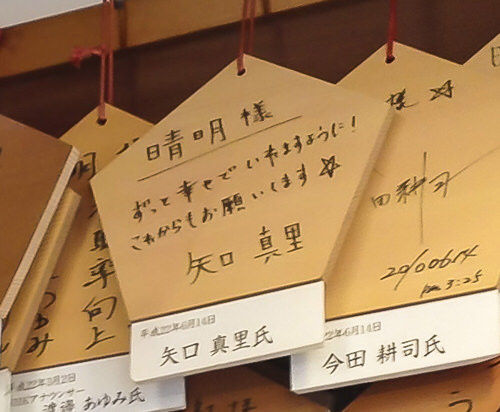 晴明様
ずっと幸せでいれますように!
これからもお願いします☆
矢口 真里
平成22年6月14日
矢口 真里氏
様 ☆
田耕司
2010 06.14
pm 3:25
22年6月14日
今田 耕司氏
率向上
平成22年3月2日
アナウンサー
渡邊 あゆみ氏